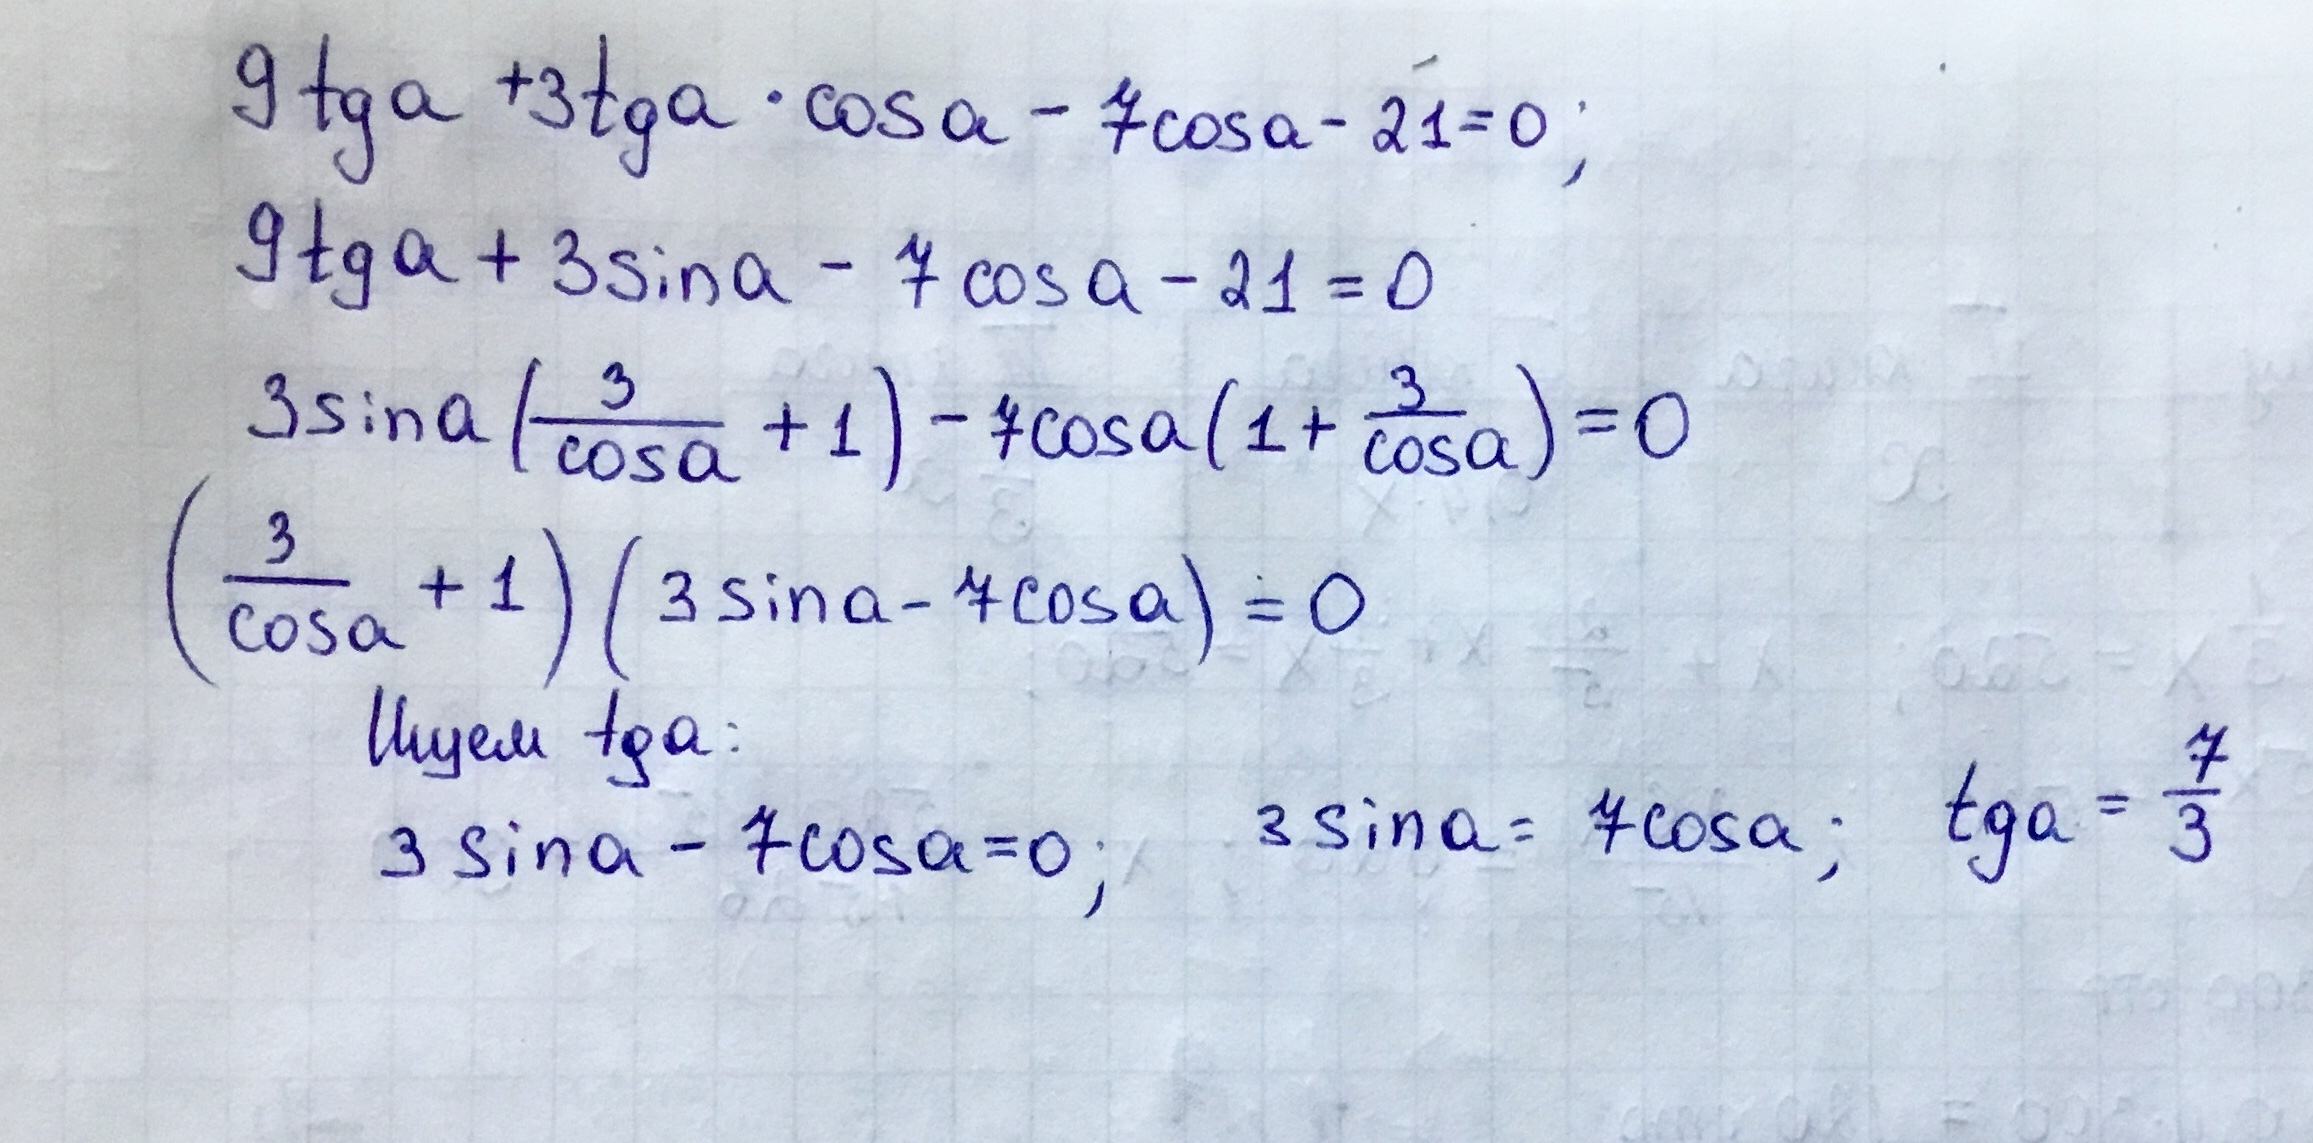 9tga +3tga · cosa - 7cosa - 21=0;
9tga + 3sina - 7cosa - 21 = 0
3sina (3/cosa + 1) - 7cosa (1 + 3/cosa) = 0
(3/cosa + 1) (3sina - 7cosa) = 0
Ищем tga:
3sina - 7cosa=0; 3sina = 7cosa; tga = 7/3